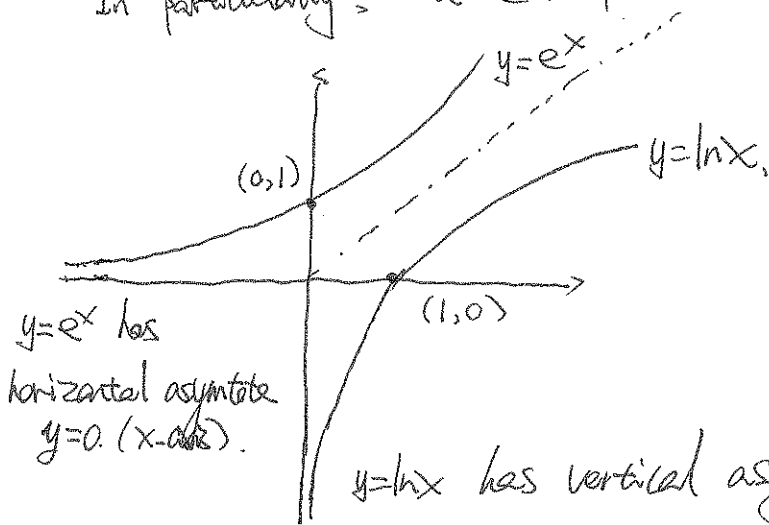 In particularly,
y=e^x
y=lnx.
(0,1)
(1,0)
y=e^x has
horizontal asymtote
y=0. (x-axis).
y=lnx has vertical as